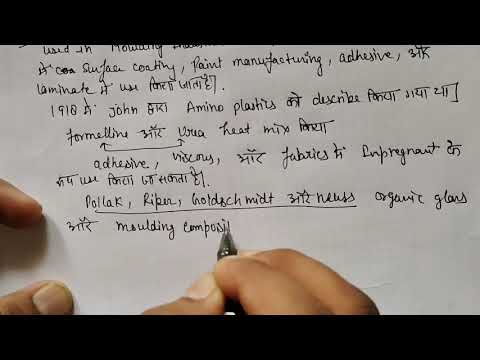 used in Moulding
में surface coating, Paint manufacturing, adhesive, और
laminate में use किया जाता है।
1918 में john द्वारा Amino plastics को describe किया गया था]
formelline और Urea heat mix किया
adhesive, viscous, और fabrics में Impregnant के
रूप use किया जा सकता है।
Pollak, Riper, Goldschmidt और neuss organic glass
और moulding composi